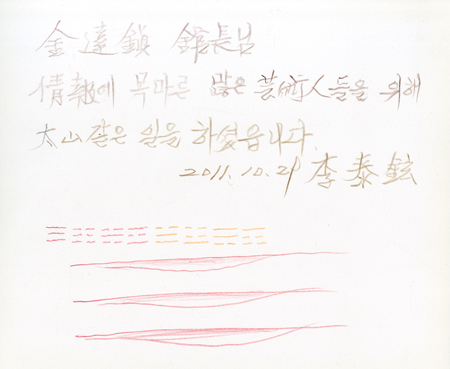 金達鎭 館長님
情報에 목마른 많은 芸術人들을 위해
太山같은 일을 하셨읍니다.
2011. 10. 21 李泰鉉